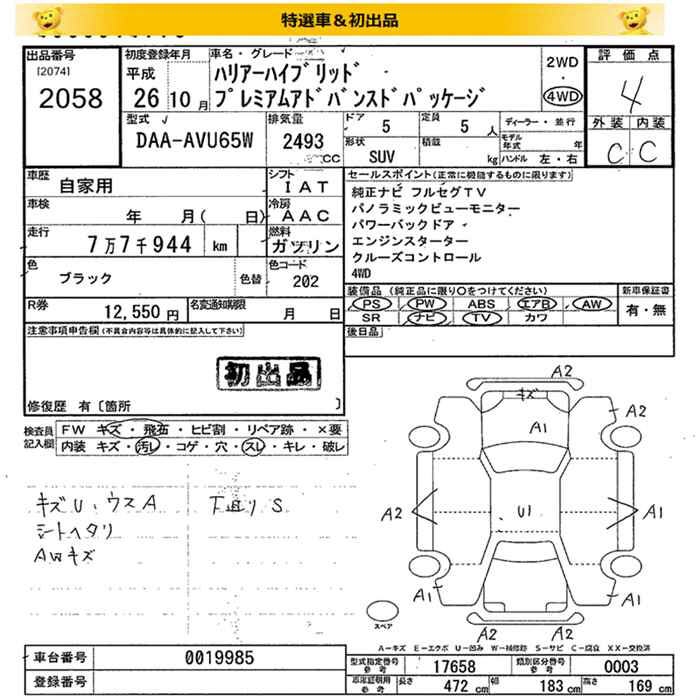 特選車＆初出品
出品番号
[2074]
2058
初度登録年月
平成
26 10 月
車名・グレード
ハリアーハイブリッド
プレミアムアドバンスドパッケージ
2WD
・
4WD
評価点
4
外装 内装
C C
型式
DAA-AVU65W
排気量
2493
CC
ドア 5
定員 5 人
形状
SUV
積載
kg
ディーラー・並行
モデル年式 年
ハンドル 左・右
車歴
自家用
シフト
IAT
車検
年 月( 日)
冷房
AAC
走行
7万7千944 km
燃料
ガソリン
色
ブラック
色替
色コード
202
R券
12,550 円
名変通知期限
月 日
セールスポイント(正常に機能するものに限ります)
純正ナビ フルセグTV
パノラミックビューモニター
パワーバックドア
エンジンスターター
クルーズコントロール
4WD
装備品 (純正品に限り○をつけてください)
新車保証書
PS PW ABS エアB AW
SR ナビ TV カワ
有・無
後日品
注意事項申告欄(不具合内容等は具体的に記入して下さい)
初出品
修復歴 有〔箇所 〕
検査員
記入欄
FW キズ・飛石・ヒビ割・リペア跡・×要
内装 キズ・汚レ・コゲ・穴・スレ・キレ・破レ
キズU、ウスA
シートヘタリ
AWキズ
下廻りS
A2
キズ
A1
A2
A2
U1
A1
A1
A1
A2 A2
スペア
A-キズ E-エクボ U-凹み W-補修跡 S-サビ C-腐食 XX-交換済
車台番号
0019985
登録番号
型式指定番号
参考
17658
類別区分番号
参考
0003
車庫証明用
参考
長さ 472 cm
幅 183 cm
高さ 169 cm